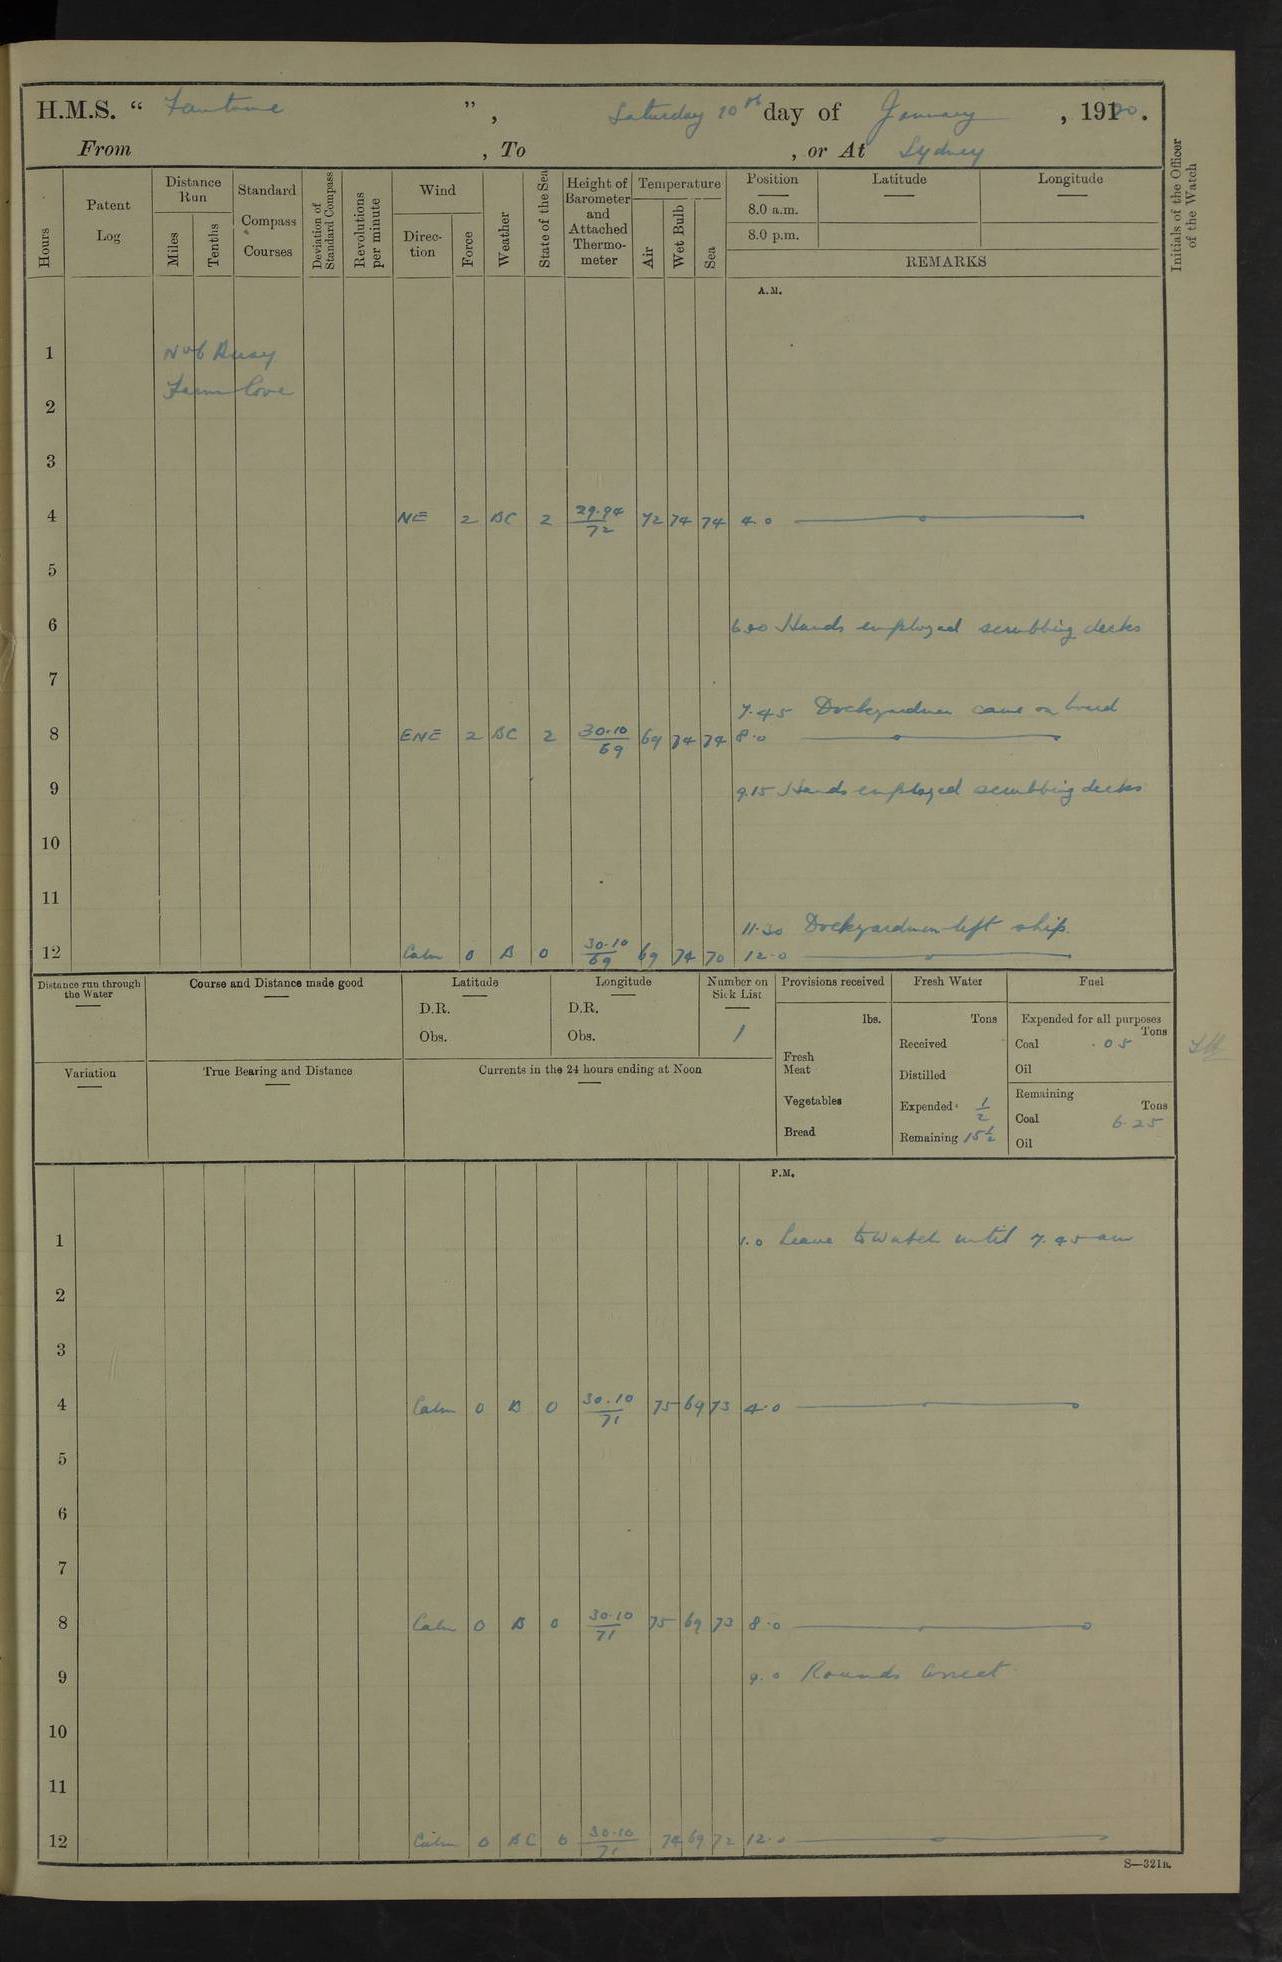 H.M.S. “ Fantome ”, Saturday 10th day of January, 1920.
From , To , or At Sydney
Hours
Patent Log
Distance Run
Miles
Tenths
Standard Compass Courses
Deviation of Standard Compass
Revolutions per minute
Wind
Direction
Force
Weather
State of the Sea
Height of Barometer and Attached Thermometer
Temperature
Air
Wet Bulb
Sea
Position
8.0 a.m.
8.0 p.m.
Latitude
Longitude
REMARKS
Initials of the Officer of the Watch
A.M.
1 No 6 Buoy
Farm Cove
2
3
4 NE 2 BC 2 29.94/72 72 74 74 4.0
5
6 6.00 Hands employed scrubbing decks
7
7.45 Dockyardmen came on board
8 ENE 2 BC 2 30.10/69 69 74 74 8.0
9 9.15 Hands employed scrubbing decks
10
11
11.30 Dockyardmen left ship.
12 Calm 0 B 0 30.10/69 69 74 70 12.0
Distance run through the Water
Course and Distance made good
Latitude
D.R.
Obs.
Longitude
D.R.
Obs.
Number on Sick List
1
Provisions received
lbs.
Fresh Meat
Vegetables
Bread
Fresh Water
Tons
Received
Distilled
Expended 1/2
Remaining 15 1/2
Fuel
Expended for all purposes
Tons
Coal .05
Oil
Remaining
Tons
Coal 6.25
Oil
Variation
True Bearing and Distance
Currents in the 24 hours ending at Noon
P.M.
1 1.0 Leave to watch until 7.45 am
2
3
4 Calm 0 B 0 30.10/71 75 69 73 4.0
5
6
7
8 Calm 0 B 0 30.10/71 75 69 73 8.0
9 9.0 Rounds Correct
10
11
12 Calm 0 BC 0 30.10/71 74 69 72 12.0
S—321B.